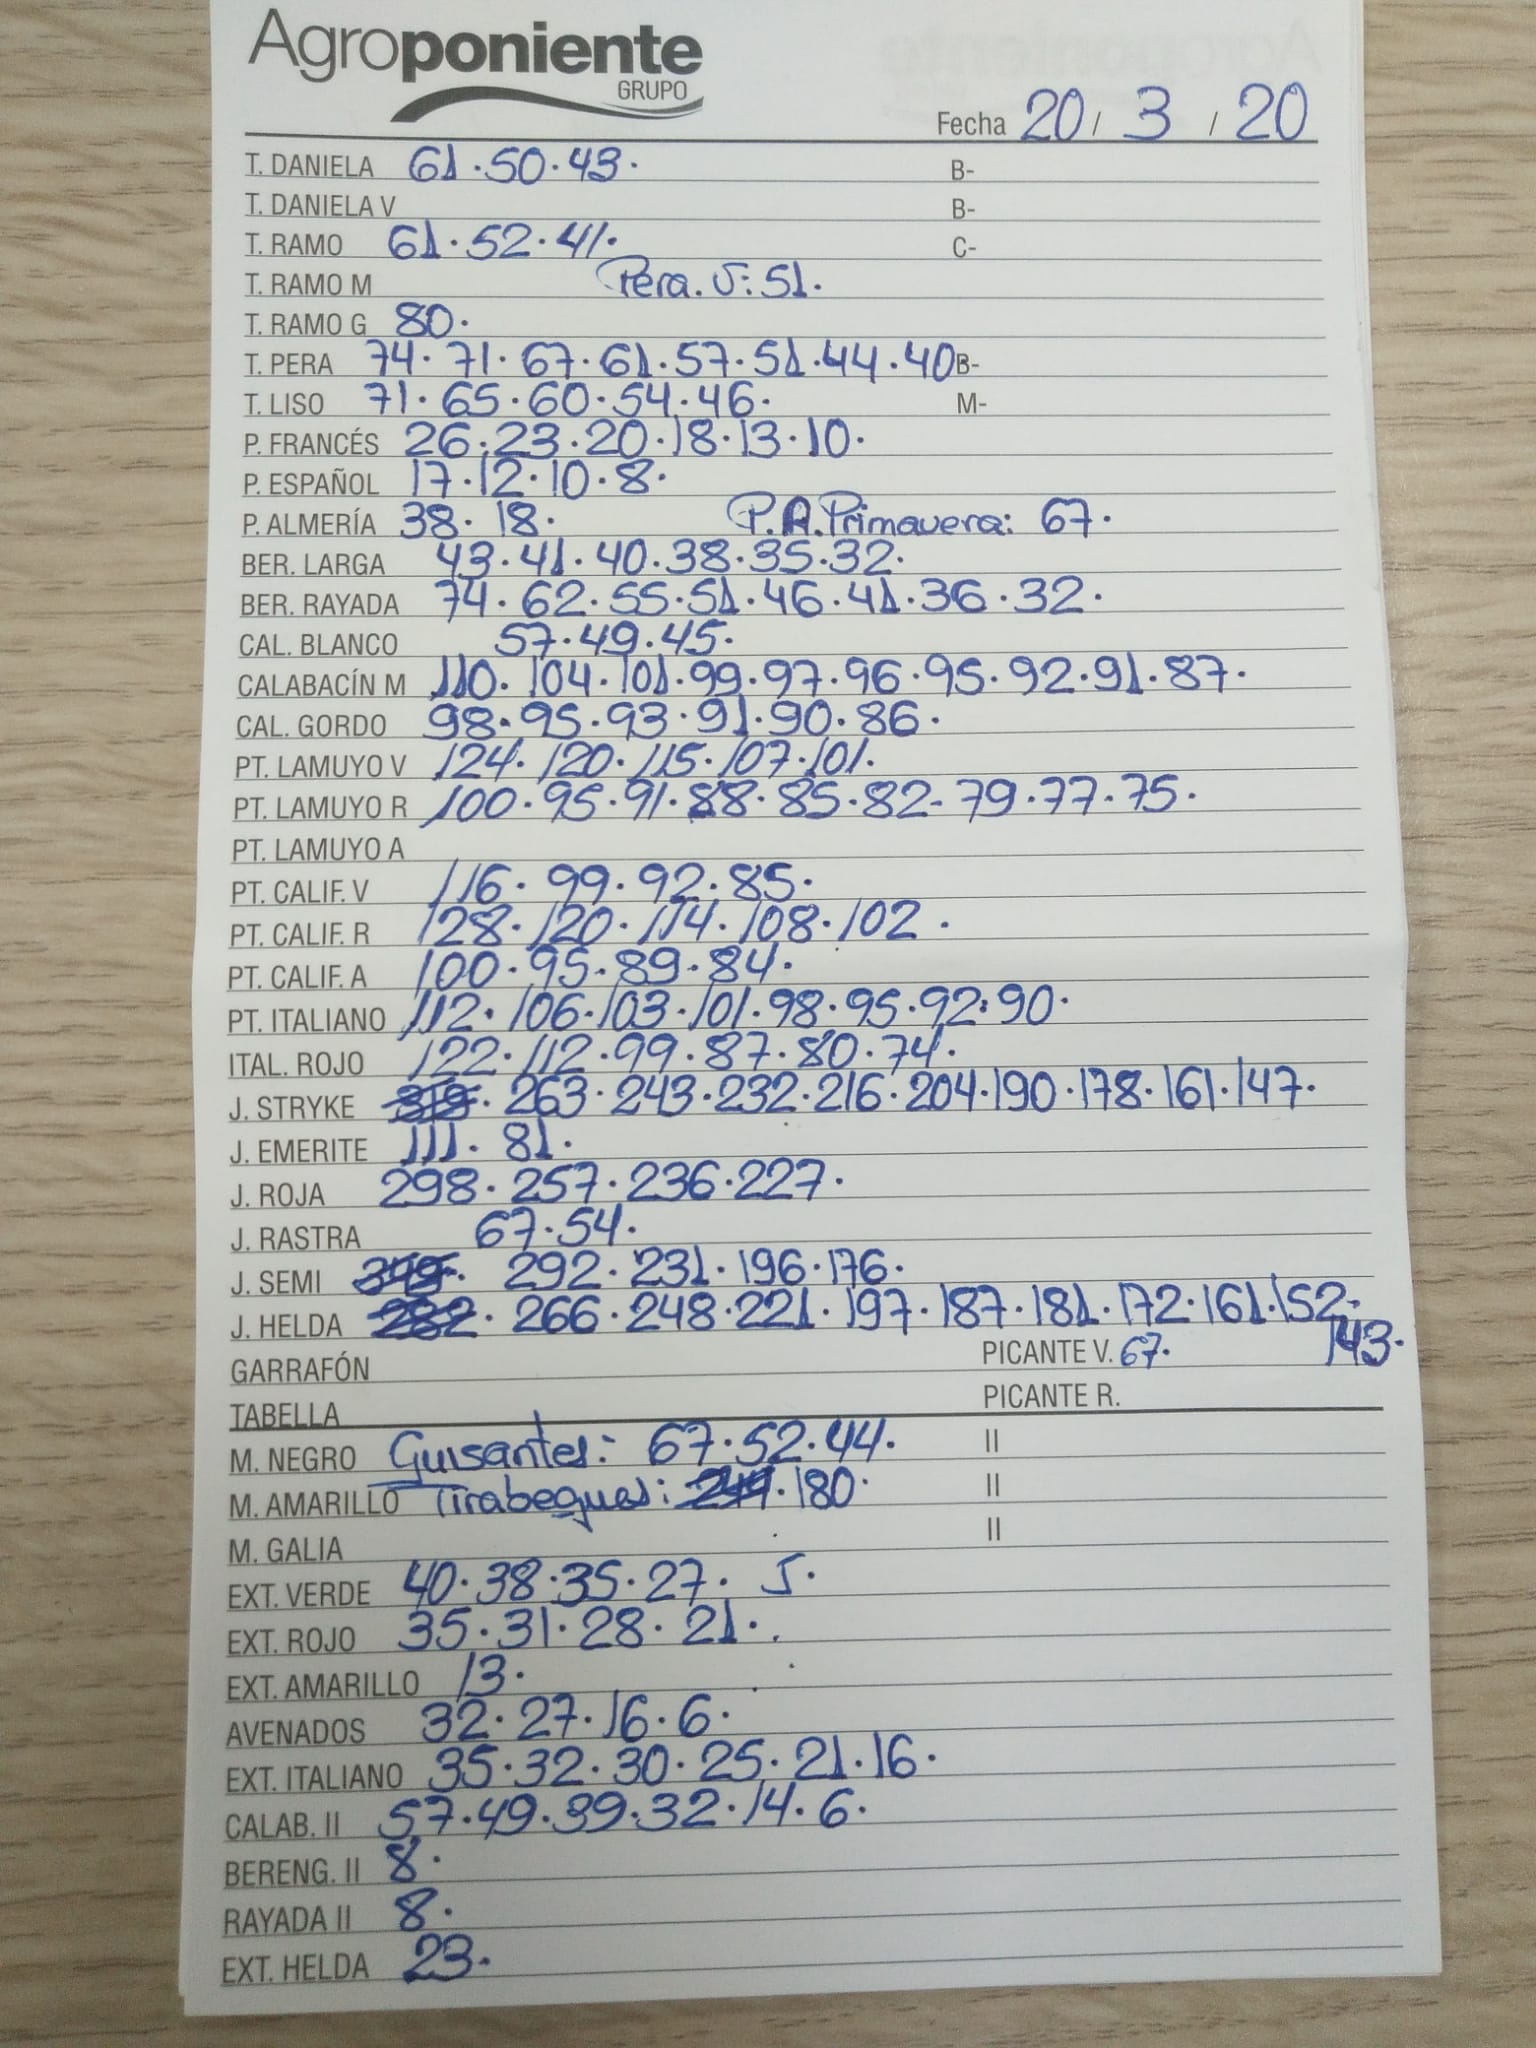 Agroponiente
GRUPO
Fecha 20 / 3 / 20
T. DANIELA 61·50·43· B-
T. DANIELA V B-
T. RAMO 61·52·41· C-
T. RAMO M Pera. V: 51.
T. RAMO G 80·
T. PERA 74·71·67·61·57·51·44·40 B-
T. LISO 71·65·60·54·46· M-
P. FRANCÉS 26·23·20·18·13·10·
P. ESPAÑOL 17·12·10·8·
P. ALMERÍA 38·18· P.A. Primavera: 67·
BER. LARGA 43·41·40·38·35·32·
BER. RAYADA 74·62·55·51·46·41·36·32·
CAL. BLANCO 57·49·45·
CALABACÍN M 110·104·101·99·97·96·95·92·91·87·
CAL. GORDO 98·95·93·91·90·86·
PT. LAMUYO V 124·120·115·107·101·
PT. LAMUYO R 100·95·91·88·85·82·79·77·75·
PT. LAMUYO A
PT. CALIF. V 116·99·92·85·
PT. CALIF. R 128·120·114·108·102·
PT. CALIF. A 100·95·89·84·
PT. ITALIANO 112·106·103·101·98·95·92·90·
ITAL. ROJO 122·112·99·87·80·74·
J. STRYKE 263·243·232·216·204·190·178·161·147·
J. EMERITE 111·81·
J. ROJA 298·257·236·227·
J. RASTRA 67·54·
J. SEMI 292·231·196·176·
J. HELDA 282·266·248·221·197·187·181·172·161·152·
143·
GARRAFÓN PICANTE V. 67·
TABELLA PICANTE R.
M. NEGRO Guisantes: 67·52·44· II
M. AMARILLO Tirabeques: 180· II
M. GALIA II
EXT. VERDE 40·38·35·27· 5·
EXT. ROJO 35·31·28·21·
EXT. AMARILLO 13·
AVENADOS 32·27·16·6·
EXT. ITALIANO 35·32·30·25·21·16·
CALAB. II 57·49·39·32·14·6·
BERENG. II 8·
RAYADA II 8·
EXT. HELDA 23·